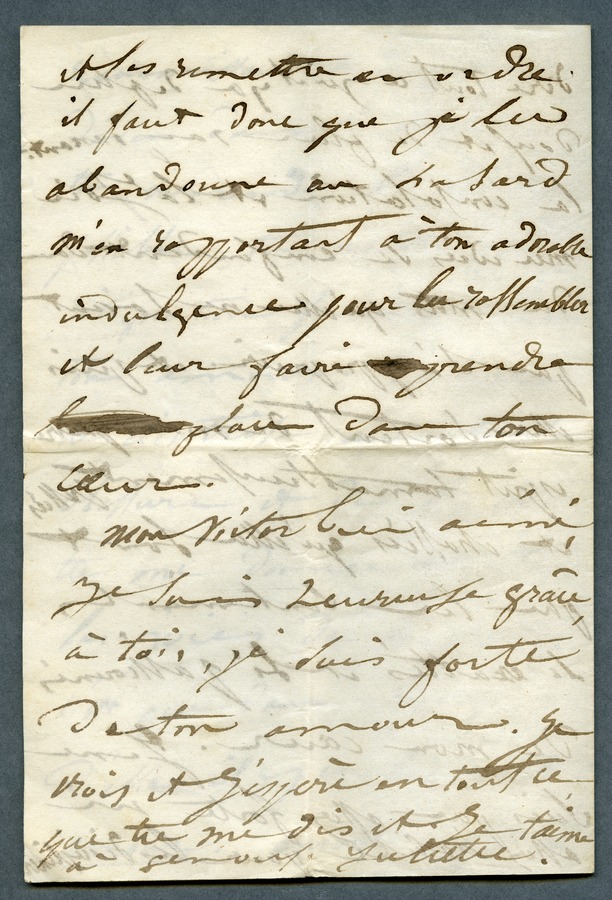 et les remettre en ordre.
il faut donc que je les
abandonne au hasard
m'en rapportant à ton adorable
indulgence pour les rassembler
et leur faire prendre
place dans ton
cœur.
mon Victor bien aimé,
je suis heureuse grâce
à toi, je suis forte
de ton amour. Je
crois et j'espère en tout ce
que tu me dis et je t'aime
à genoux. Juliette.